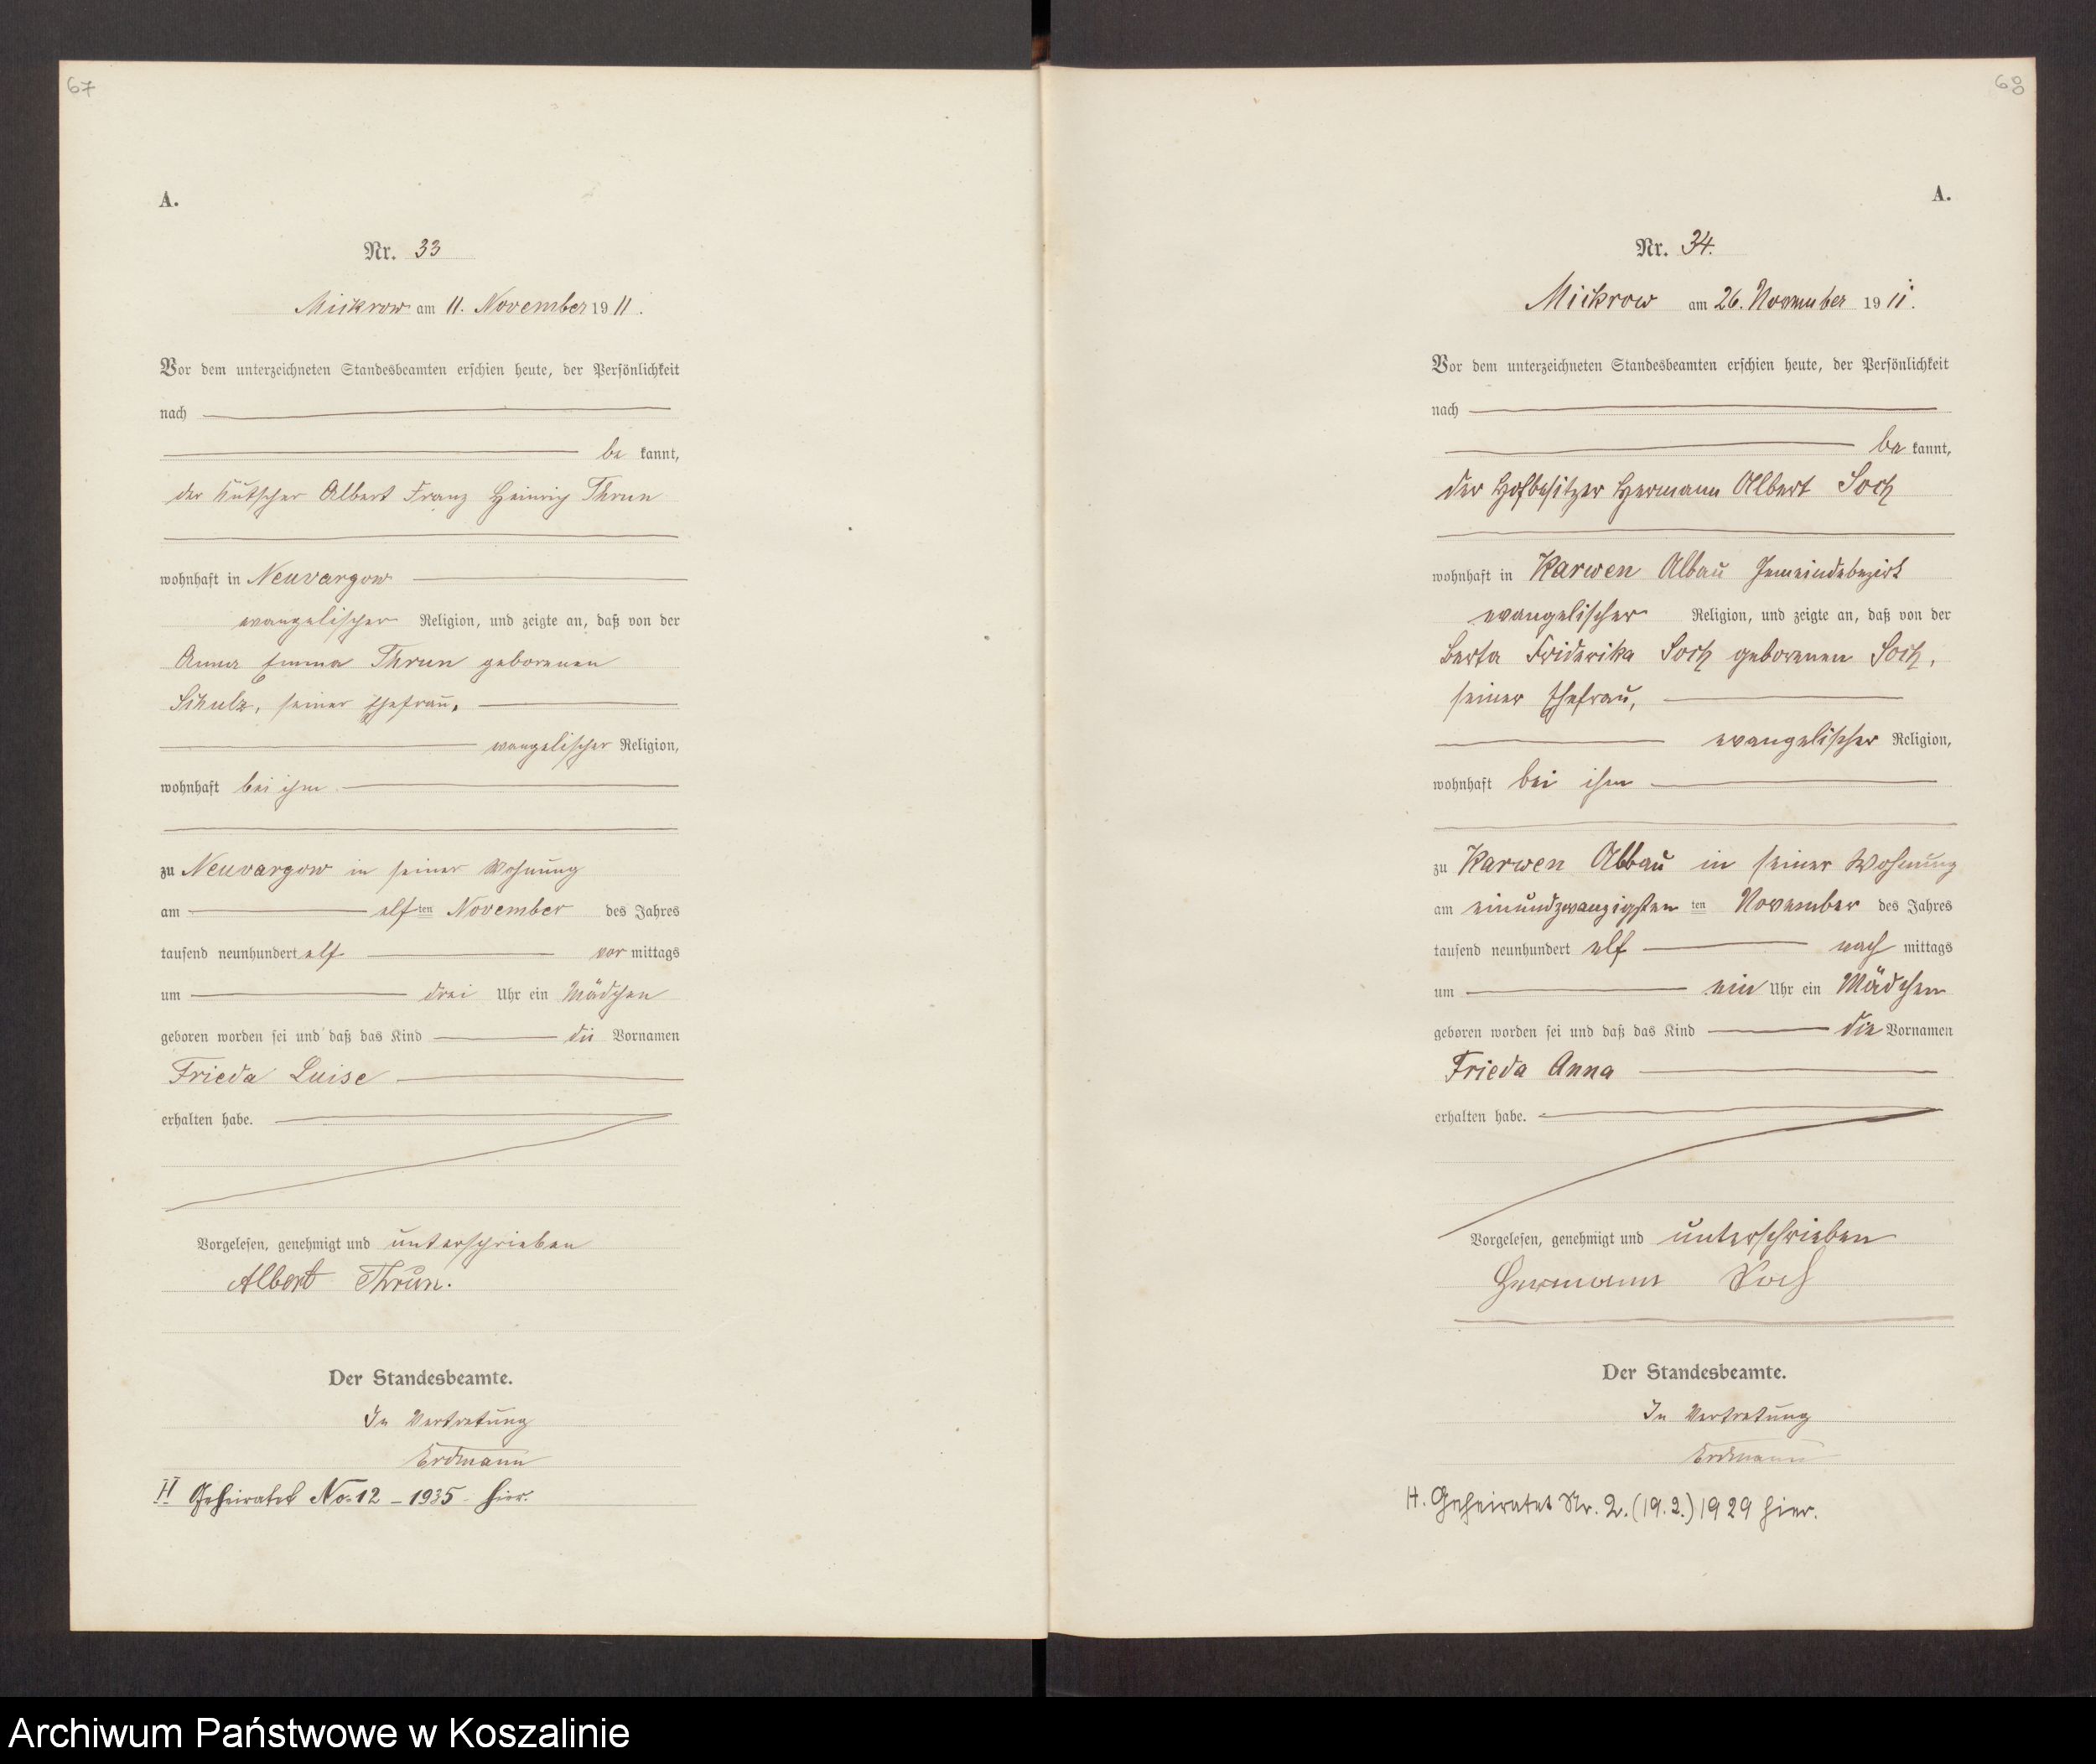 67
A.
Nr. 33
Mickrow am 11. November 1911.
Vor dem unterzeichneten Standesbeamten erschien heute, der Persönlichkeit
nach
be kannt,
der Kutscher Albert Franz Heinrich Thrun
wohnhaft in Neuvargow
evangelischer Religion, und zeigte an, daß von der
Anna Emma Thrun geborenen
Schulz, seiner Ehefrau,
evangelischer Religion,
wohnhaft bei ihm
zu Neuvargow in seiner Wohnung
am elf ten November des Jahres
tausend neunhundert elf vor mittags
um drei Uhr ein Mädchen
geboren worden sei und daß das Kind die Vornamen
Frieda Luise
erhalten habe.
Vorgelesen, genehmigt und unterschrieben
Albert Thrun.
Der Standesbeamte.
In Vertretung
Erdmann
H Geheiratet No. 12 - 1935 hier.
68
A.
Nr. 34.
Mickrow am 26. November 1911.
Vor dem unterzeichneten Standesbeamten erschien heute, der Persönlichkeit
nach
be kannt,
der Hofbesitzer Hermann Albert
wohnhaft in Karwen Abbau Gemeindebezirk
evangelischer Religion, und zeigte an, daß von der
Berta Friderika geborenen
seiner Ehefrau,
evangelischer Religion,
wohnhaft bei ihm
zu Karwen Abbau in seiner Wohnung
am einundzwanzigsten ten November des Jahres
tausend neunhundert elf nach mittags
um ein Uhr ein Mädchen
geboren worden sei und daß das Kind die Vornamen
Frieda Anna
erhalten habe.
Vorgelesen, genehmigt und unterschrieben
Hermann
Der Standesbeamte.
In Vertretung
Erdmann
H. Geheiratet Nr. 2. (19.2.) 1929 hier.
Archiwum Państwowe w Koszalinie